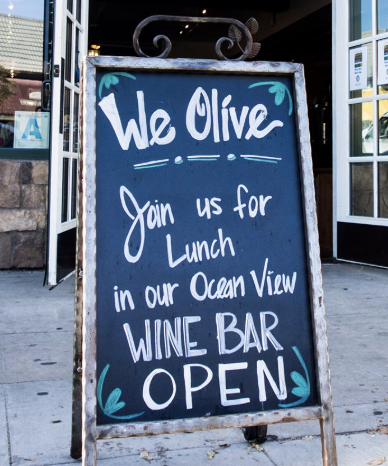 We Olive
Join us for
Lunch
in our Ocean View
WINE BAR
OPEN
A